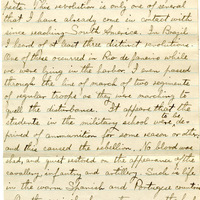 parts. This revolution is only one of several
that I have already come in contact with
since reaching South America. In Brazil
I heard of at least three distinct revolutions
One of these occurred in Rio de Janeiro while
we were lying in the harbor. I even passed
through the line of march of two segments
of regular troops as they were marching to
quell the disturbance. It appears that the
students in the military school were to be de-
prived of ammunition for some reason or other,
and this caused the rebellion. No blood was
shed, and quiet restored on the appearance of the
cavallery, infantry and artillery. Such is life
in the warm Spanish and Portugese countries